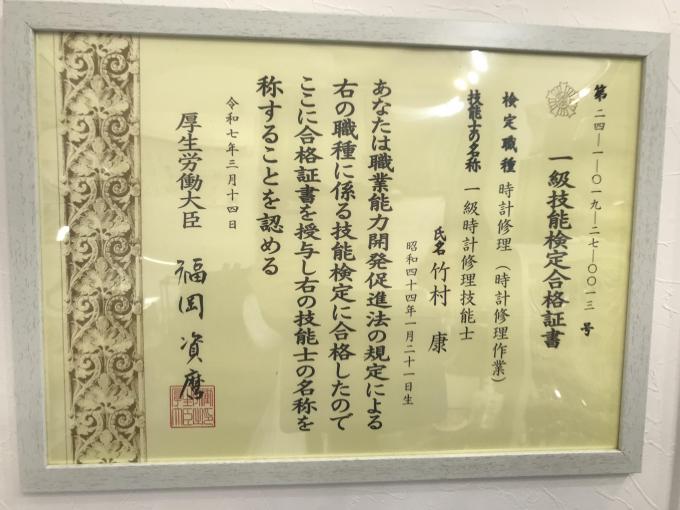 第二四―一―〇一九―二七―〇〇一三号
一級技能検定合格証書
検定職種 時計修理（時計修理作業）
技能士の名称 一級時計修理技能士
氏名 竹村 康
昭和四十四年一月二十一日生
あなたは職業能力開発促進法の規定による
右の職種に係る技能検定に合格したので
ここに合格証書を授与し右の技能士の名称を
称することを認める
令和七年三月十四日
厚生労働大臣 福岡資麿